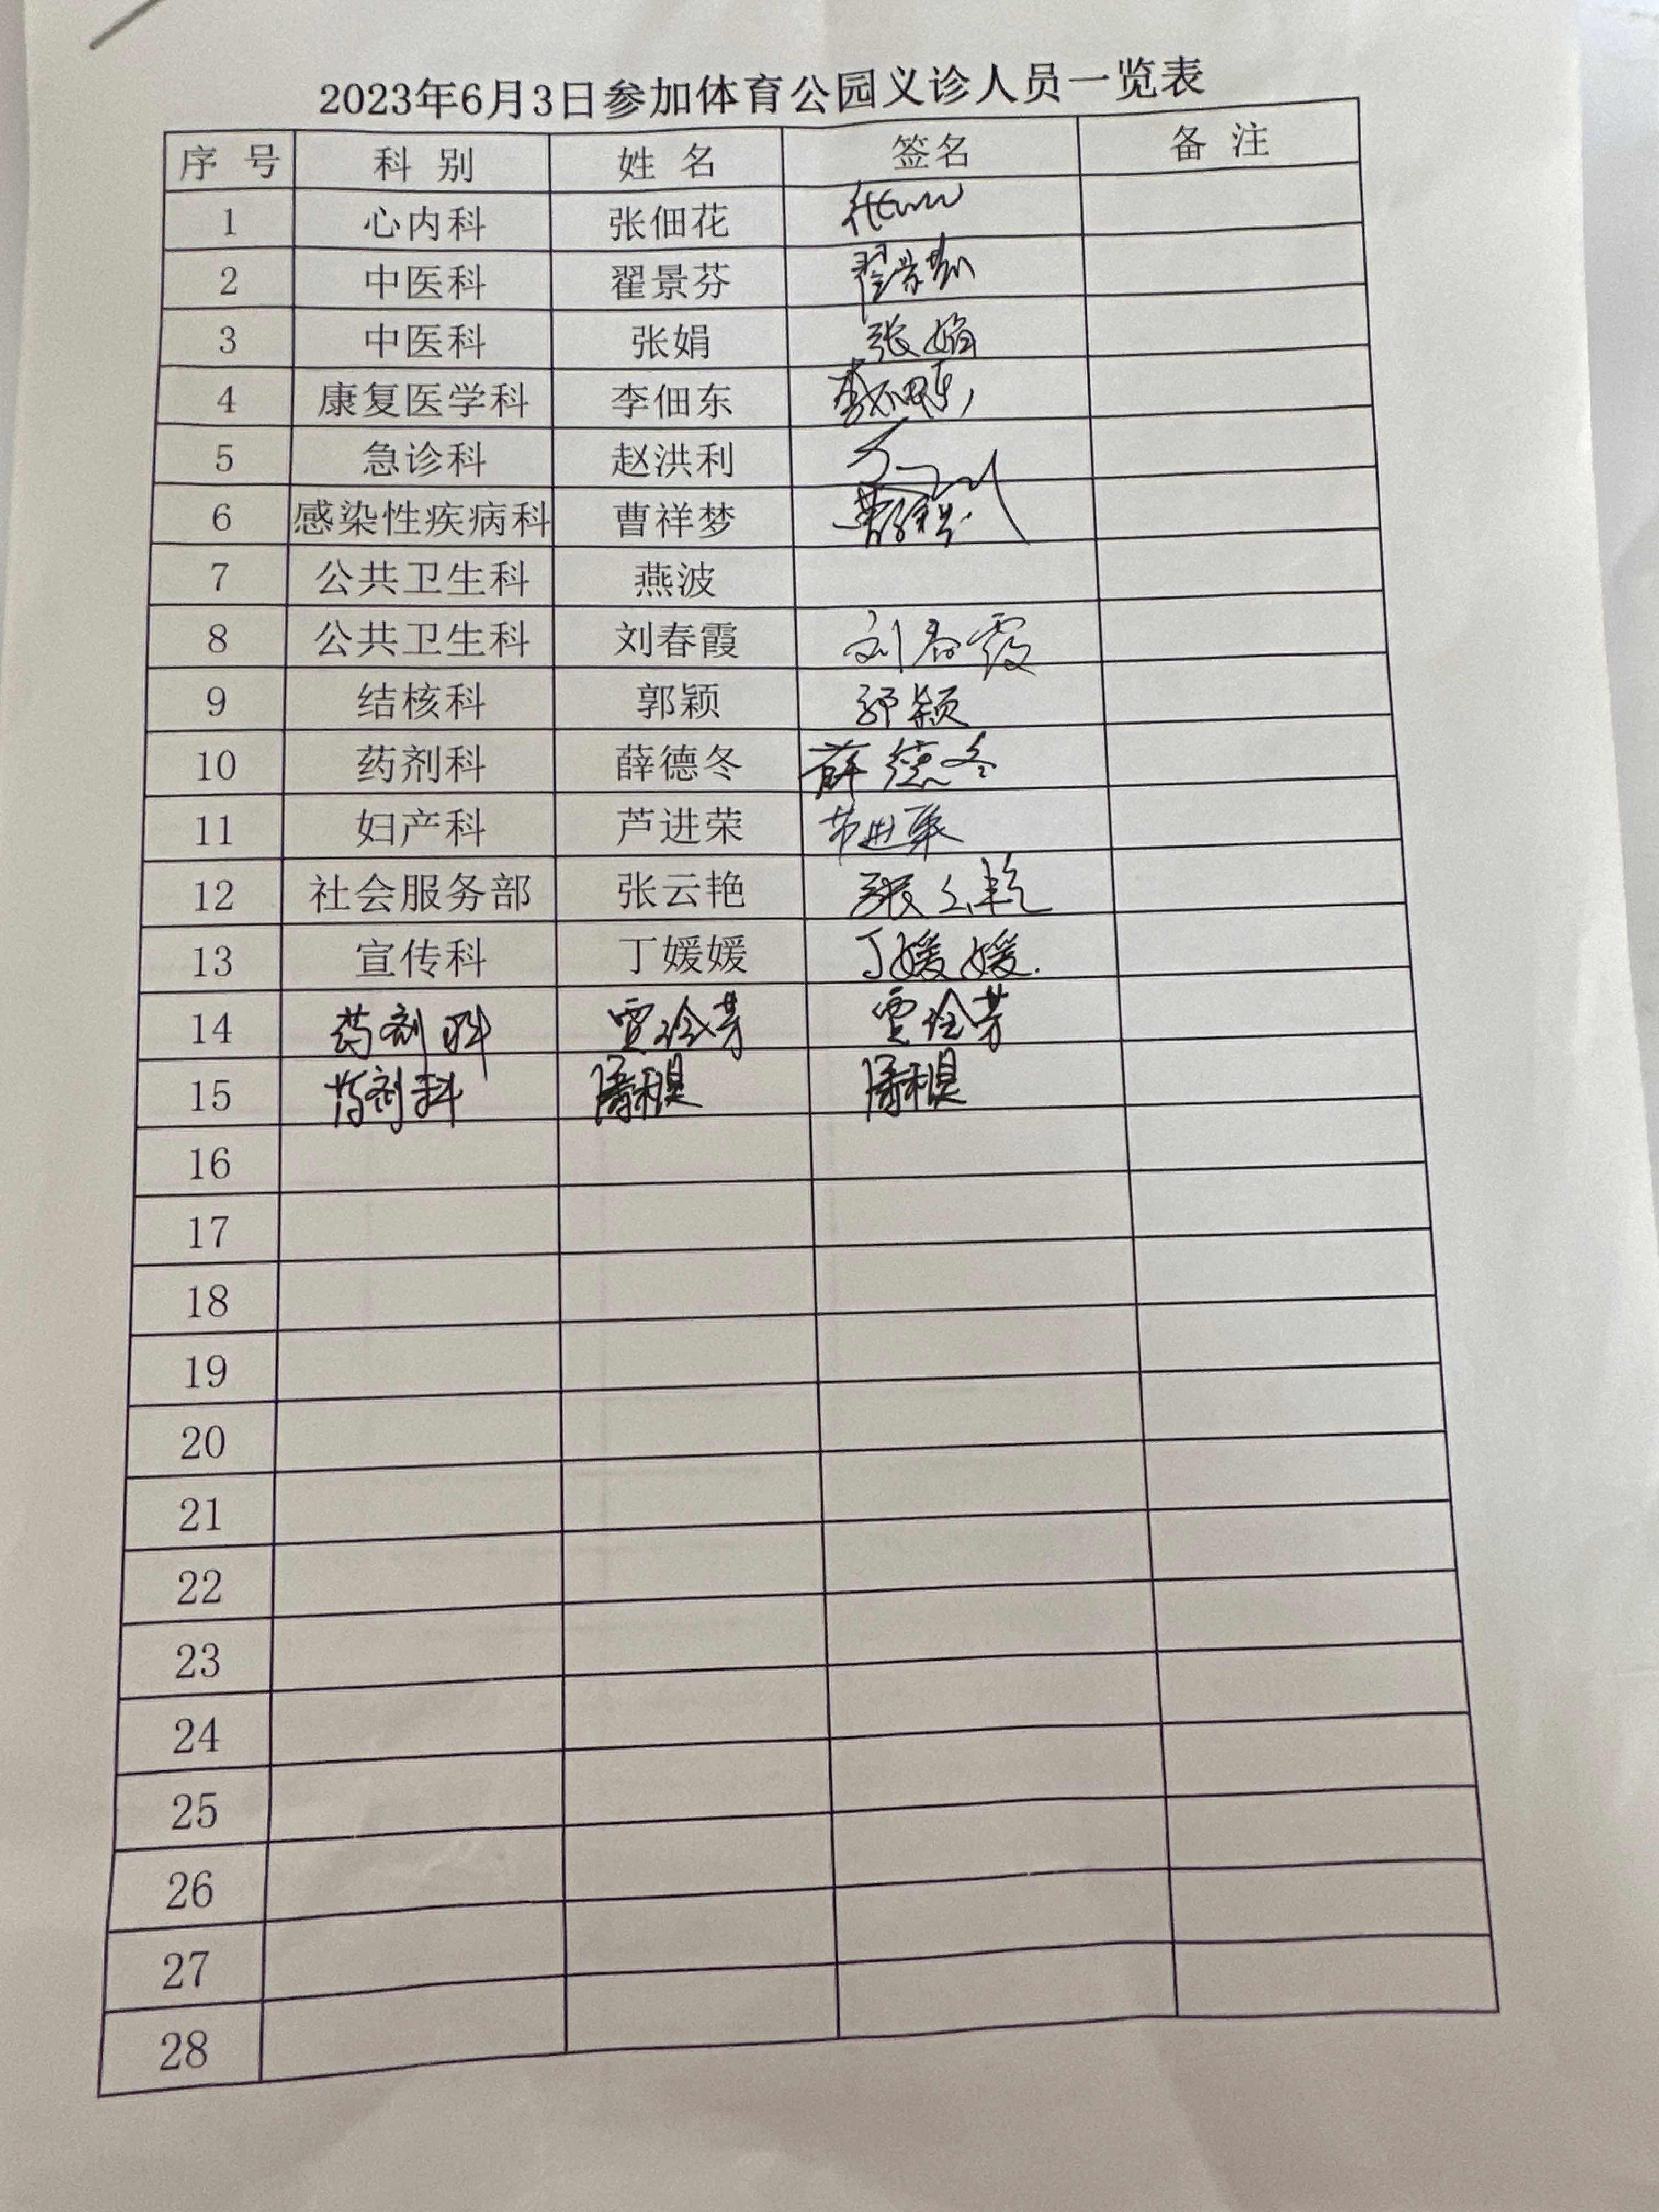 2023年6月3日参加体育公园义诊人员一览表
序 号 科 别 姓 名 签名 备 注
1 心内科 张佃花
2 中医科 翟景芬 翟景芬
3 中医科 张娟 张娟
4 康复医学科 李佃东 李佃东
5 急诊科 赵洪利
6 感染性疾病科 曹祥梦
7 公共卫生科 燕波
8 公共卫生科 刘春霞 刘春霞
9 结核科 郭颖 郭颖
10 药剂科 薛德冬 薛德冬
11 妇产科 芦进荣 芦进荣
12 社会服务部 张云艳 张云艳
13 宣传科 丁媛媛 丁媛媛.
14 药剂科 贾玲芳 贾玲芳
15 药剂科
16
17
18
19
20
21
22
23
24
25
26
27
28